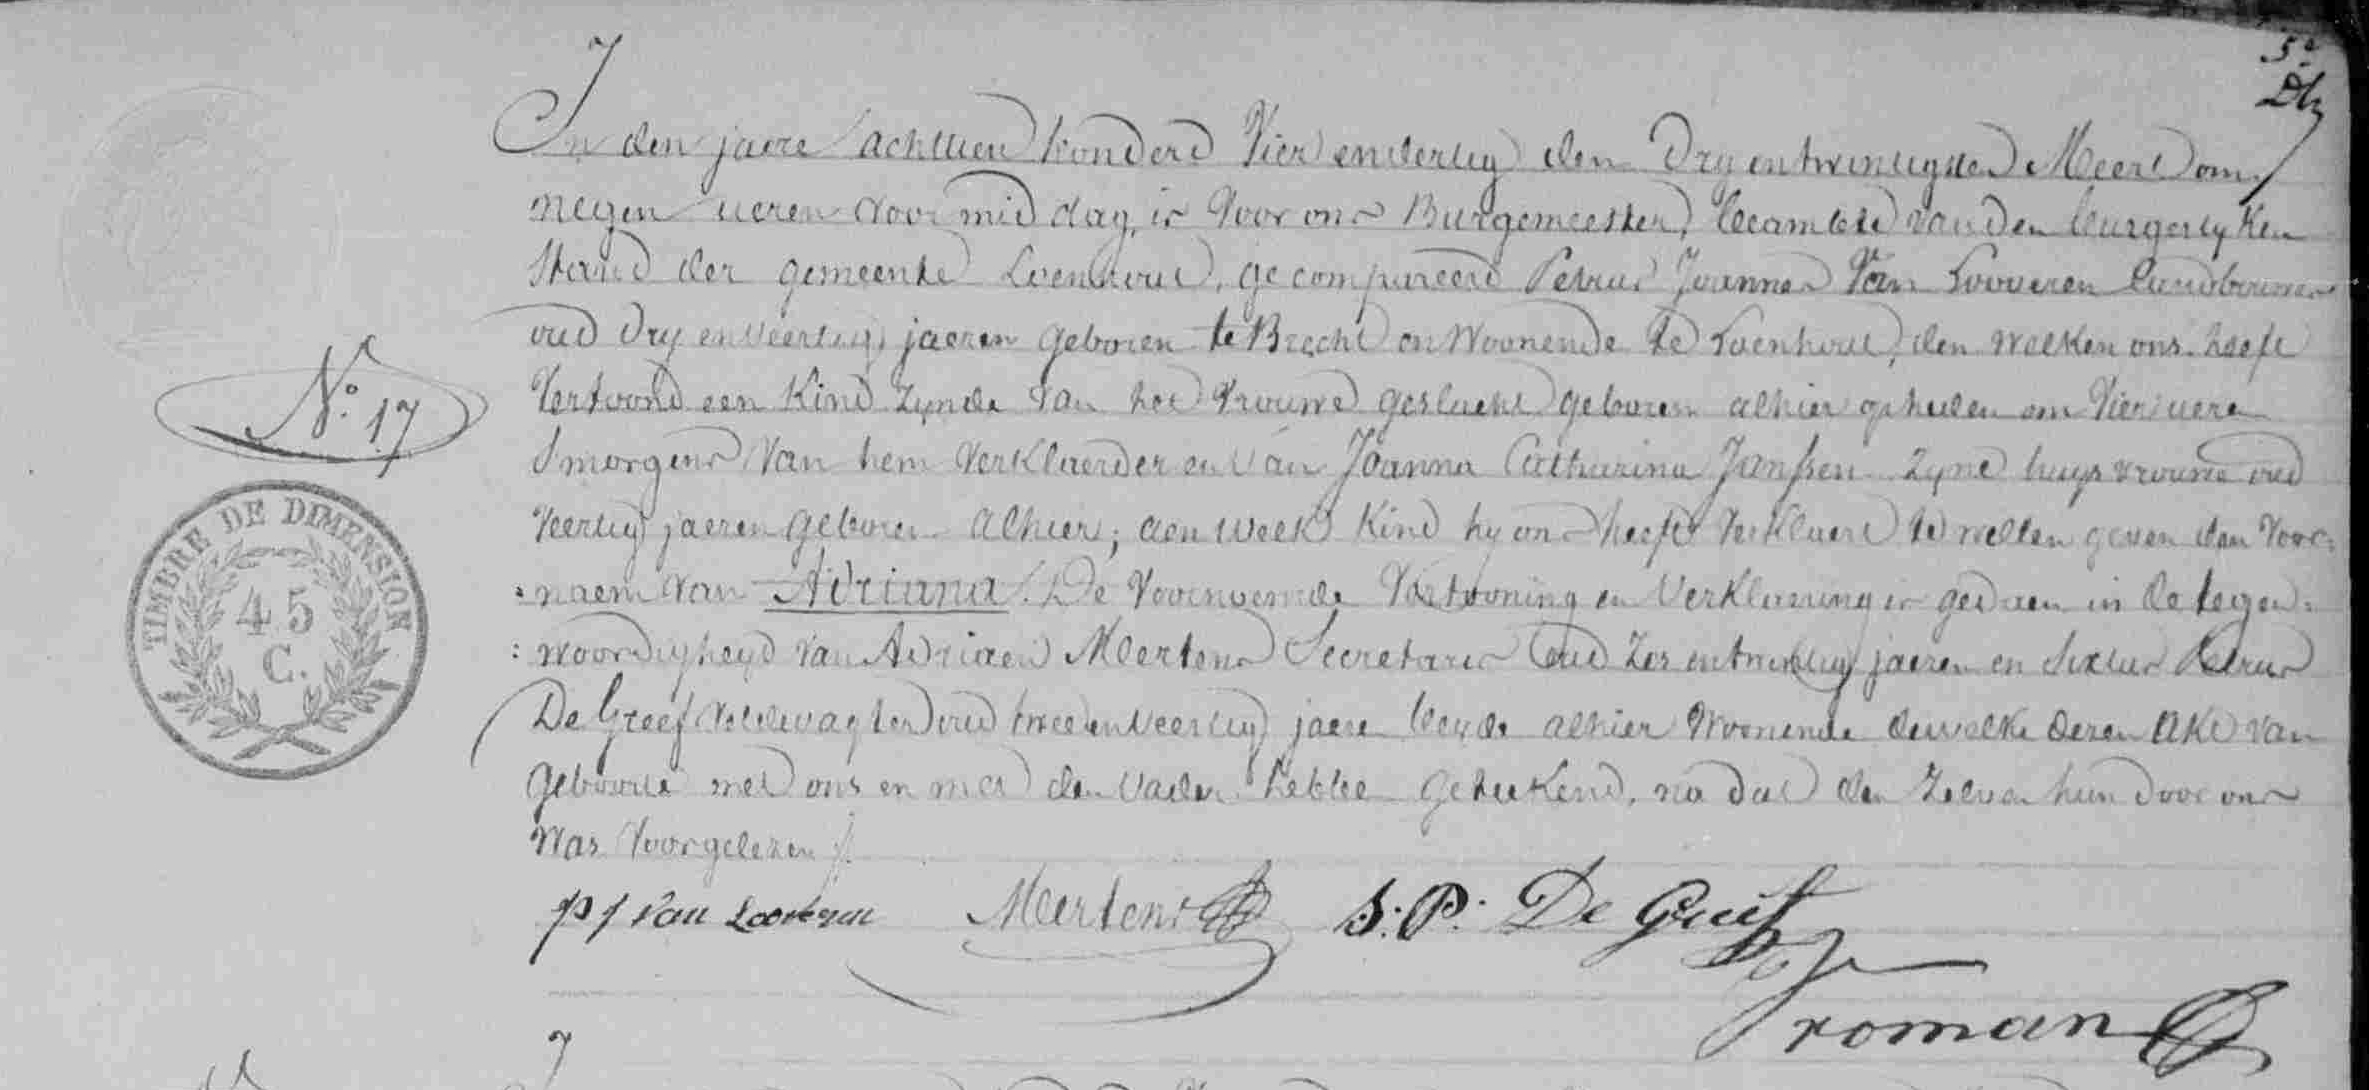 5e
In den jaere achttien honderd Vier en dertig den Dry en twintigsten Meert om
negen ueren voormiddag, is Voor ons Burgemeester, beambte van den burgerlyken
Stand der gemeente Loenhout, gecompareerd Petrus Joannes Van Looveren landbouwer
oud dry en veertig jaeren geboren te Brecht en Woonende te Loenhout, den welken ons heeft
Vertoond een Kind Zynde Van het Vrouwe geslacht geboren alhier op heden om Vier uere
Smorgens Van hem Verklaerder en Van Joanna Catharina Janssen Zyne huysvrouwe oud
Veertig jaeren geboren alhier; aen welk Kind hy ons heeft Verklaert te willen geven den Voor:
:naem van Adriana. De Voornoemde Vertooning en Verklaering is gedaen in de tegen:
:woordigheyd van Adriaen Mertens Secretaris oud Zes en twintig jaeren en Sixtus Petrus
De Greef Veldwagter oud twee en Veertig jaere beyde alhier Woonende dewelke dezen Akt van
Geboorte met ons en met den Vader hebbe geteekend, na dat den Zelven hun door ons
Was Voorgelezen
No. 17
TIMBRE DE DIMENSION
45
C.
pj Van Looveren Mertens S: P. De Greef
roman